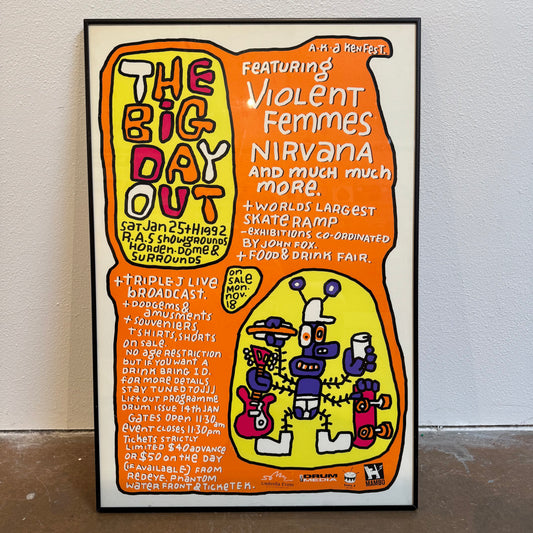 A.K.A KENFEST.
THE
BiG
DAY
OUT
SAT JAN 25TH 1992
R.A.S SHOWGROUNDS
HORDEN-DOME &
SURROUNDS
FEATURING
VIOLENT
FEMMES
NIRVANA
AND MUCH MUCH
MORE.
+ WORLDS LARGEST
SKATE RAMP
- EXHIBITIONS CO-ORDINATED
BY JOHN FOX.
+ FOOD & DRINK FAIR.
ON
SALE
MON.
NOV.
18
+ TRIPLE J LIVE
BROADCAST.
+ DODGEMS &
AMUSMENTS
+ SOUVENIERS,
TSHIRTS, SHORTS
ON SALE.
NO AGE RESTRICTION
BUT IF YOU WANT A
DRINK BRING I.D.
FOR MORE DETAILS
STAY TUNED TO JJJ
LIFTOUT PROGRAMME
DRUM ISSUE 14TH JAN
GATES OPEN 11:30 AM
EVENT CLOSES 11:30PM
TICKETS STRICTLY
LIMITED $40 ADVANCE
OR $50 ON THE DAY
(IF AVAILABLE) FROM
REDEYE, PHANTOM
WATERFRONT & TICKETEK.
DRUM
MEDIA
MAMBO